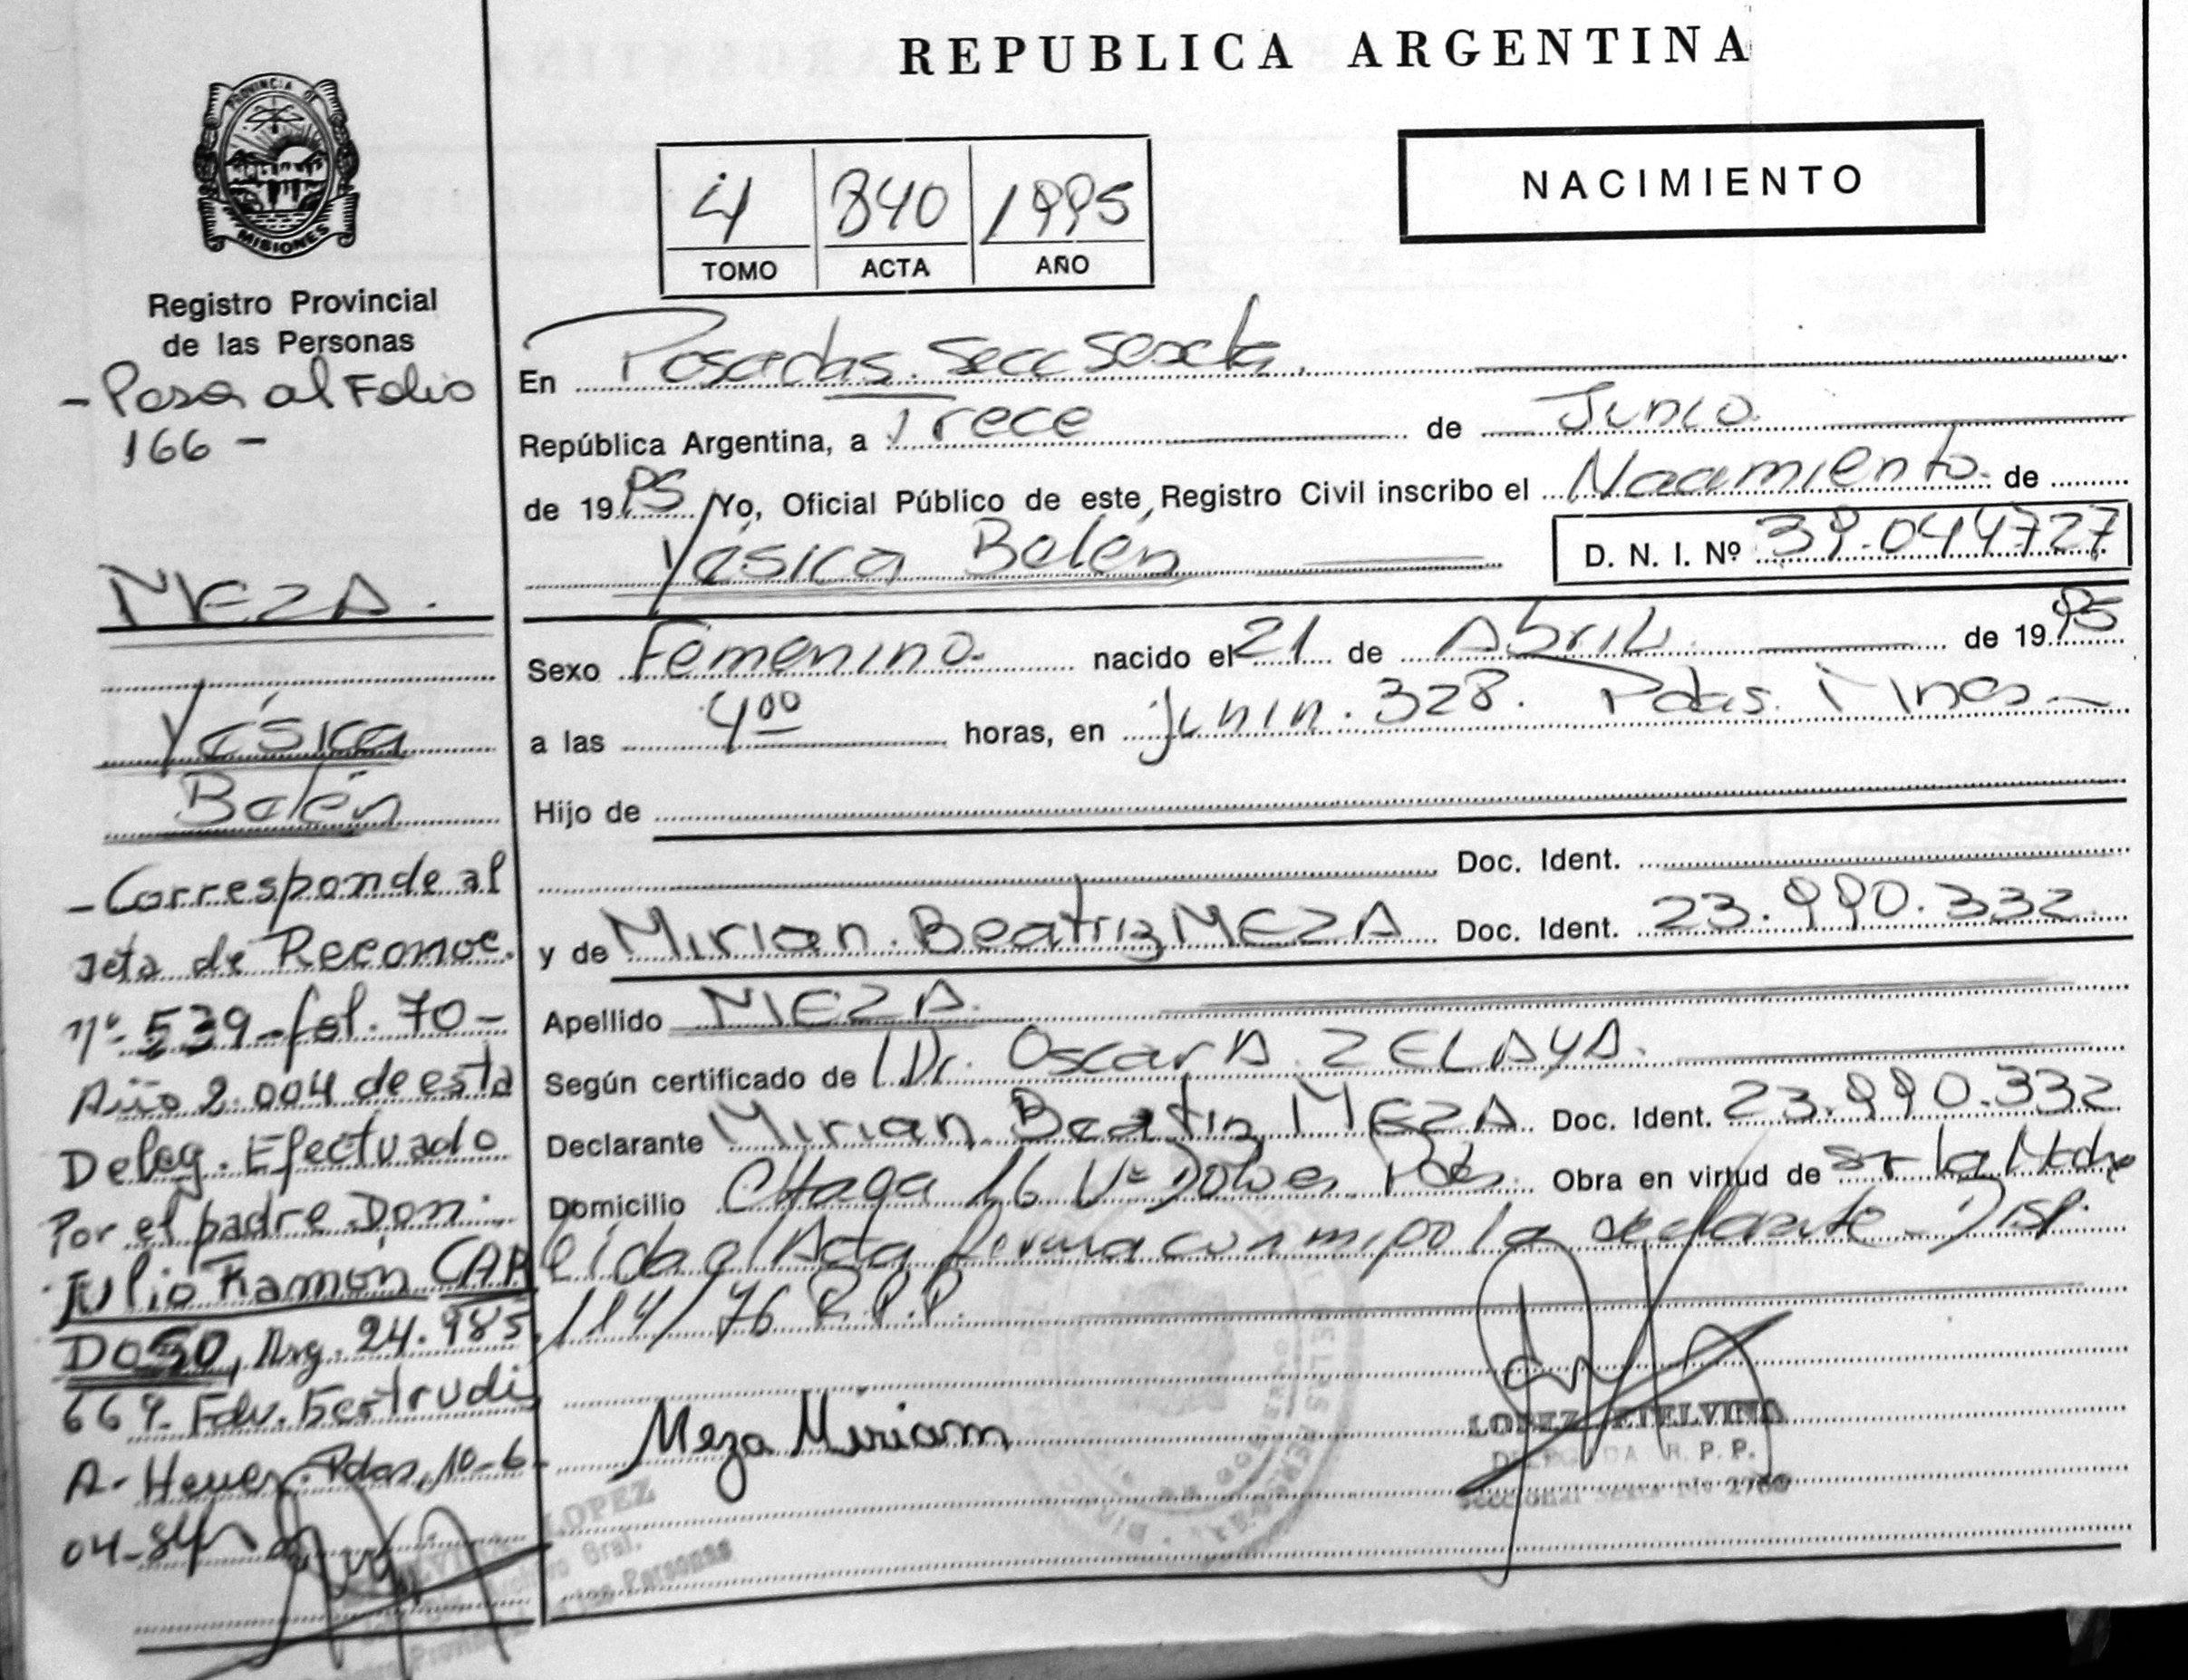 REPUBLICA ARGENTINA
PROVINCIA DE
MISIONES
Registro Provincial
de las Personas
- Pasa al Folio
166 -
MEZA.
Yésica
Belén
- Corresponde al
Acta de Reconoc.
nº 539 - fol. 70 -
Año 2.004 de esta
Deleg. Efectuado
Por el padre Don:
Julio Ramón CAR
DOSO, Arg. 24.985.
669. Fdo. Gertrudis
A. Pdas, 10-6-
04-
4 840 1995
TOMO ACTA AÑO
NACIMIENTO
En Posadas. Secc Sexta.
República Argentina, a Trece de Junio
de 1995 Yo, Oficial Público de este Registro Civil inscribo el Nacimiento de
Yésica Belén D. N. I. Nº 39.044727
Sexo Femenino nacido el 21 de Abril de 1995
a las 4⁰⁰ horas, en Junin. 328. Pdas. Mnes -
Hijo de
Doc. Ident.
y de Mirian Beatriz MEZA Doc. Ident. 23.990.332
Apellido MEZA.
Según certificado de Dr. Oscar A. ZELAYA.
Declarante Mirian Beatriz MEZA Doc. Ident. 23.990.332
Domicilio 16 Vª Pdas Obra en virtud de ser la Madre
leida el Acta firma conmigo la declarante - Disp.
114/76 R.P.P.
Meza Miriam
LOPEZ ETELVINA
DELEGADA R. P. P.
Seccional Sexta Nº
LOPEZ
Archivo Gral.
Personas